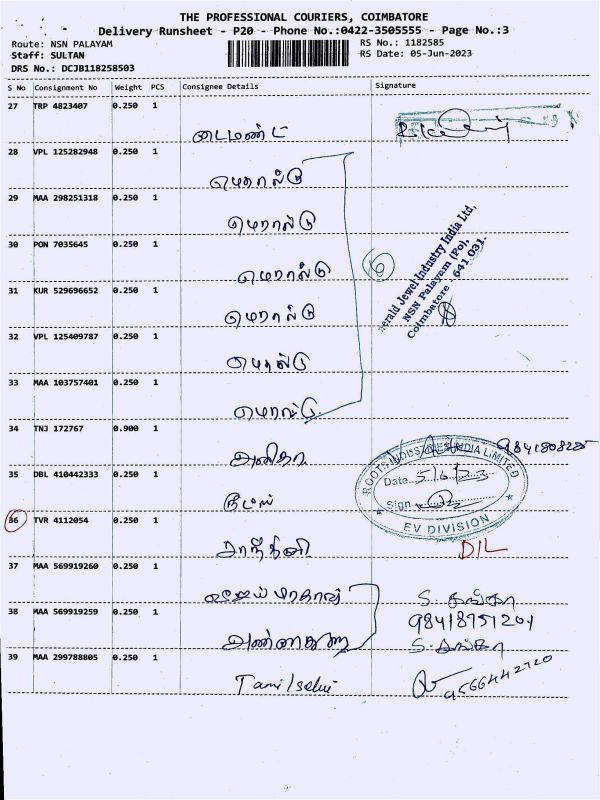 THE PROFESSIONAL COURIERS, COIMBATORE
Delivery Runsheet - P20 - Phone No.:0422-3505555 - Page No.:3
Route: NSN PALAYAM
RS No.: 1182585
Staff: SULTAN
RS Date: 05-Jun-2023
DRS No.: DCJB118258503
S No Consignment No Weight PCS Consignee Details Signature
27 TRP 4823407 0.250 1
டைமண்ட்
28 VPL 125282948 0.250 1
எமரால்டு
29 MAA 298251318 0.250 1
எமரால்டு
30 PON 7035645 0.250 1
எமரால்டு
6
erald Jewel Industry India Ltd,
NSN Palayam (Po),
Coimbatore - 641 031.
31 KUR 529696652 0.250 1
எமரால்டு
32 VPL 125409787 0.250 1
எமரால்டு
33 MAA 103757401 0.250 1
எமரால்டு
34 TNJ 172767 0.900 1
அனிதா
35 DBL 410442333 0.250 1
ROOTS INDUSTRIES INDIA LIMITED
Date 5/6/23
Sign
EV DIVISION
ரூட்ஸ்
36 TVR 4112054 0.250 1
D/L
37 MAA 569919260 0.250 1
S. கங்கா
9841875120
38 MAA 569919259 0.250 1
S. கங்கா
39 MAA 299788805 0.250 1
Tamilselvi
9566442720